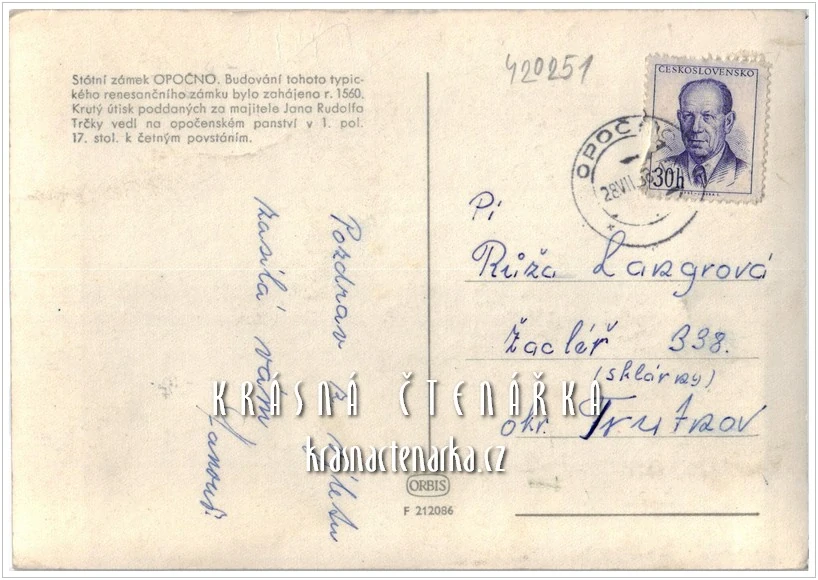 Státní zámek OPOČNO. Budování tohoto typic-
kého renesančního zámku bylo zahájeno r. 1560.
Krutý útisk poddaných za majitele Jana Rudolfa
Trčky vedl na opočenském panství v 1. pol.
17. stol. k četným povstáním.
420251
ČESKOSLOVENSKO
30h
OPOČNO
28 VII
Pozdrav z výletu
zasílá vám
Janouš
Pí
Růža Langrová
Žacléř 338.
(sklárny)
okr. Trutnov
KRÁSNÁ ČTENÁŘKA
krasnactenarka.cz
ORBIS
F 212086